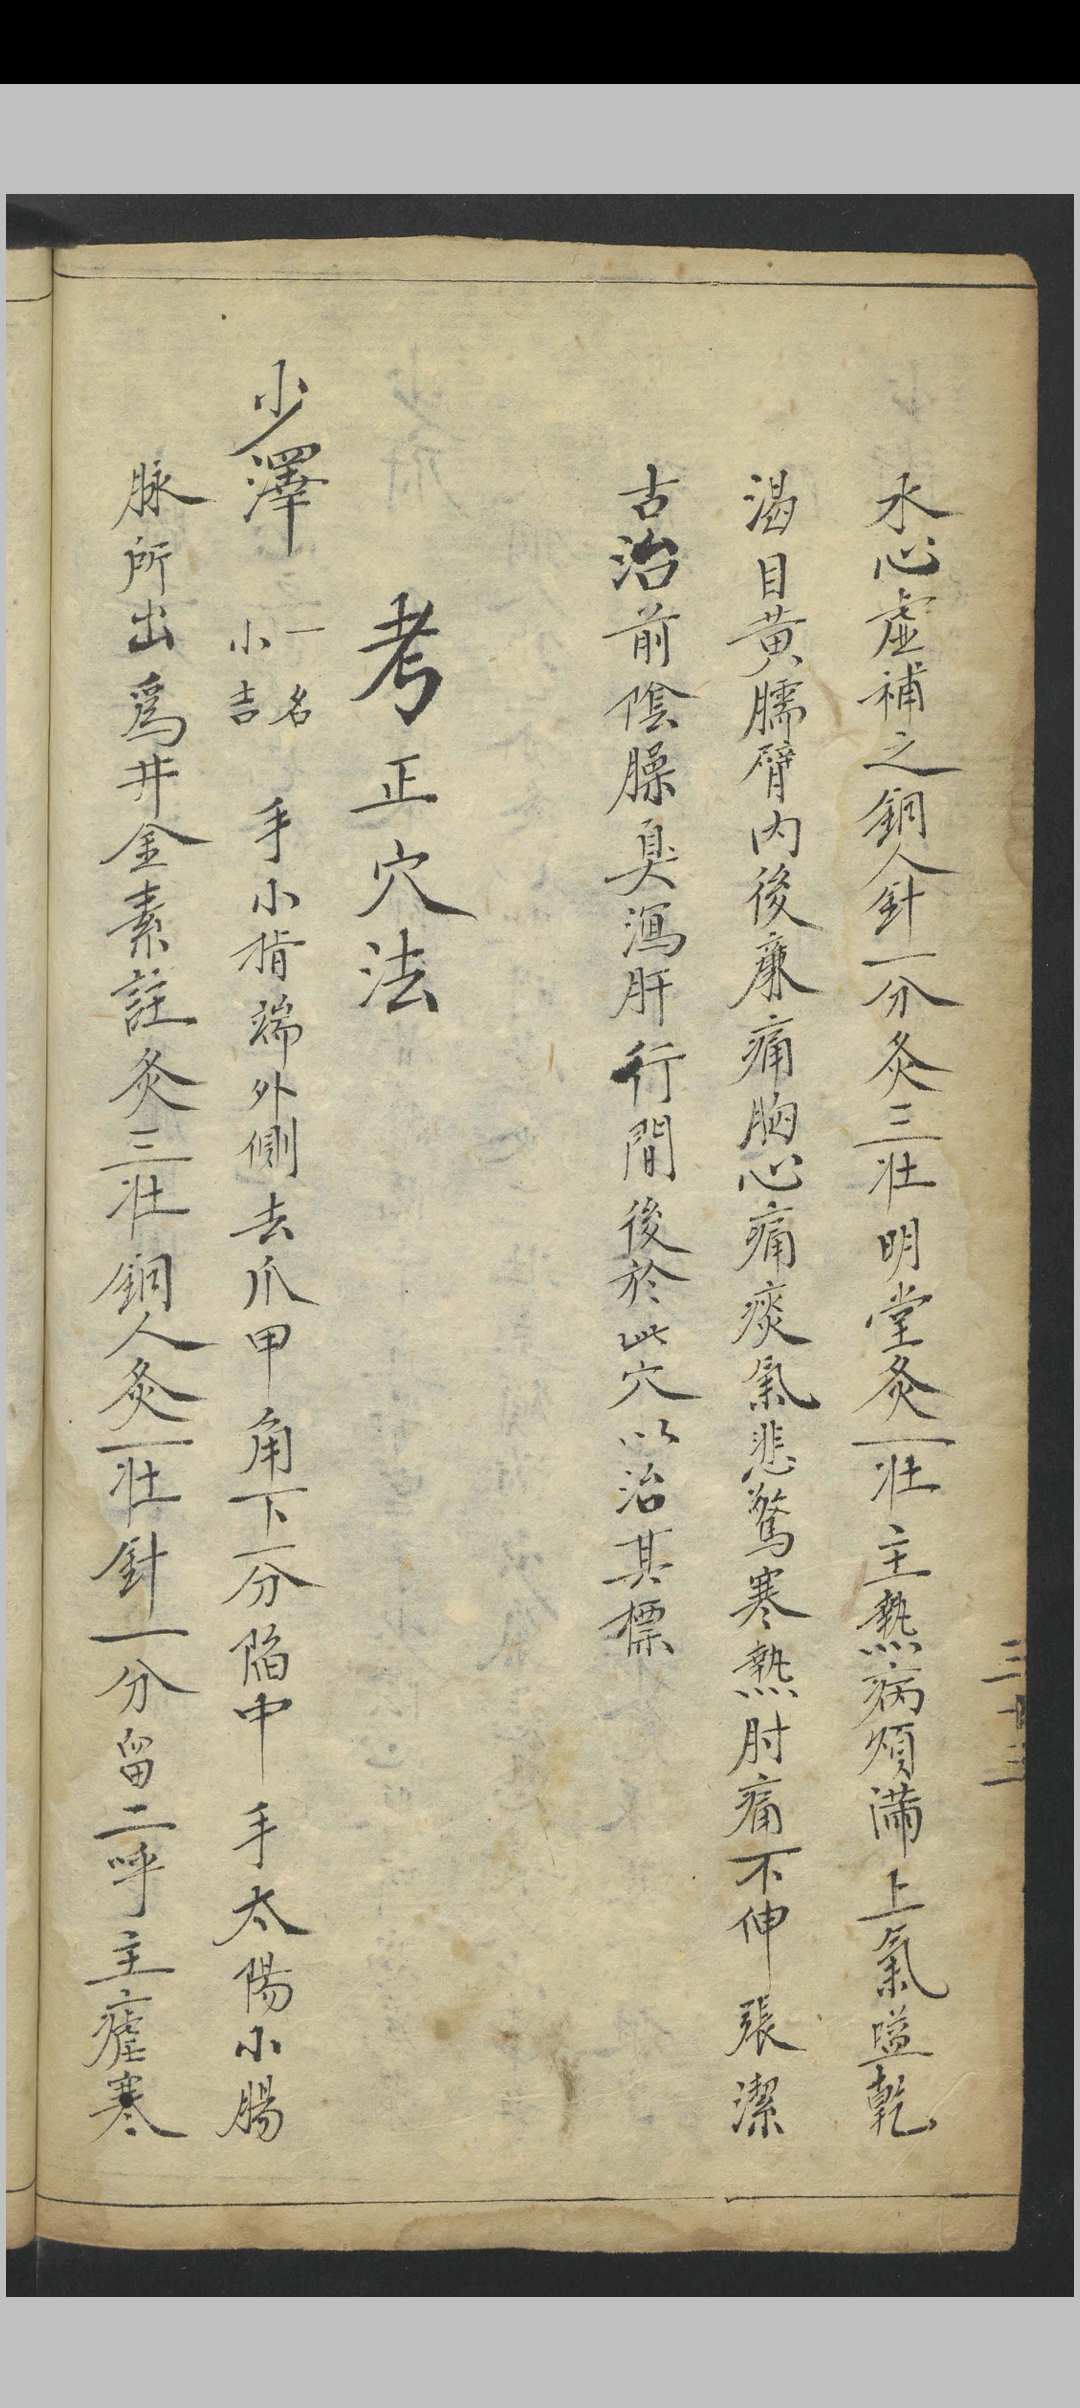 水心虛補之銅人針一分灸三壯明堂灸一壯主熱病煩滿上氣嗌乾
渴目黃臑臂內後廉痛胸心痛痰氣悲驚寒熱肘痛不伸張潔
古治前陰臊臭瀉肝行間後於此穴以治其標
考正穴法
少澤 一名小吉 手小指端外側去爪甲角下一分陷中手太陽小腸
脉所出爲井金素註灸三壯銅人灸一壯針一分留二呼主瘧寒